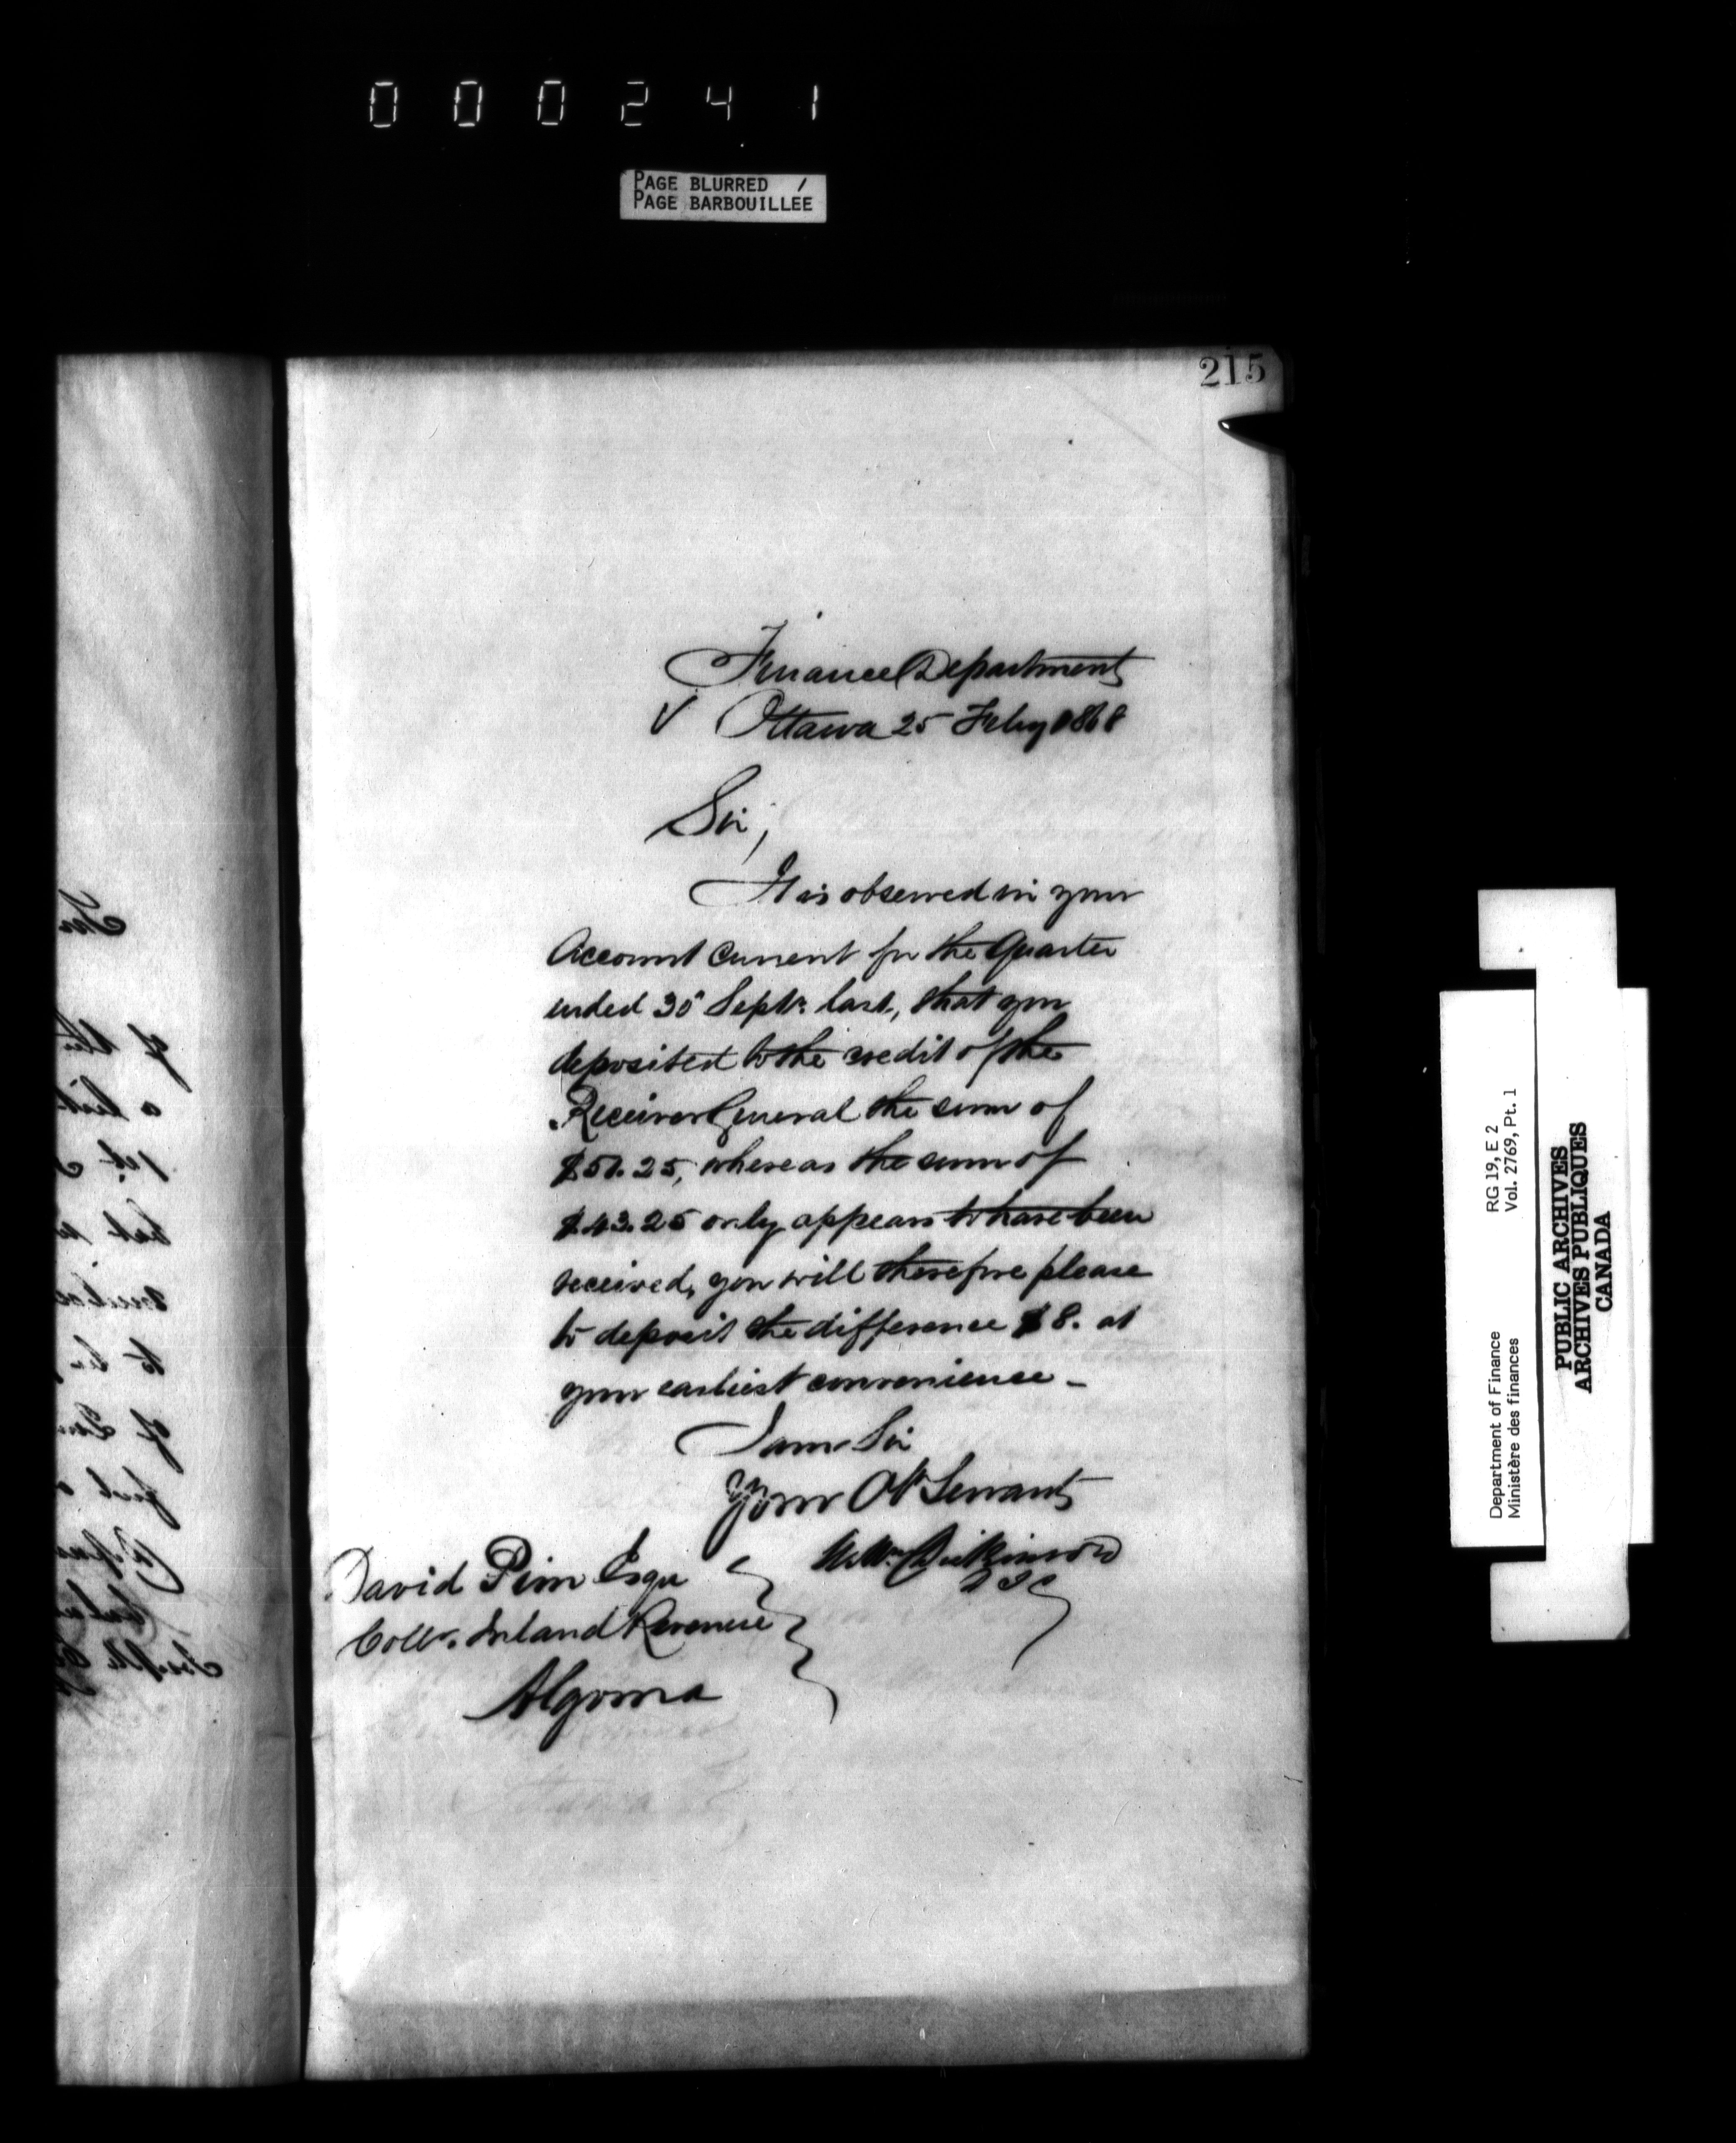 000241
PAGE BLURRED /
PAGE BARBOUILLÉE
215
Finance Department
V Ottawa 25 Feby 1868
Sir,
It is observed in your
Account Current for the Quarter
ended 30 Septr. last, that you
deposited to the credit of the
Receiver General the sum of
$51.25, whereas the sum of
$43.25 only appears to have been
received, you will therefore please
to deposit the difference $8. at
your earliest convenience _
I am Sir
Your Ob Servant
Wm Dickinson
David Pim Esqre
Collr. Inland Revenue
Algoma
Department of Finance RG 19, E 2
Ministère des finances Vol. 2769, Pt. 1
PUBLIC ARCHIVES
ARCHIVES PUBLIQUES
CANADA